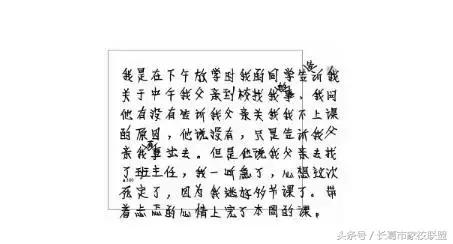 我是在下午放学时我的同学告诉我
关于中午我父亲到校找我事。我问
他有没有告诉我父亲关我我不上课
的原因,他说没有,只是告诉我父
亲我真出去。但是他说我父亲去找
了班主任,我一听急了,心想这次
死定了,因为我逃好多节课了。带
着忐忑的心情上完了本周的课。
头条号 / 长葛市家校联盟